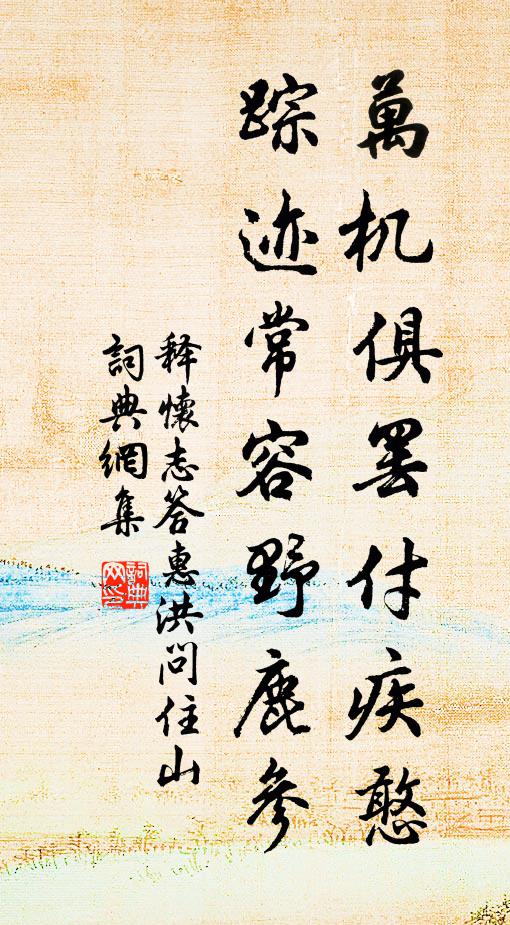 萬机俱罢付疾憨
踪迹常容野鹿參
释懷志答惠洪問住山
詞典網集
詞典网印